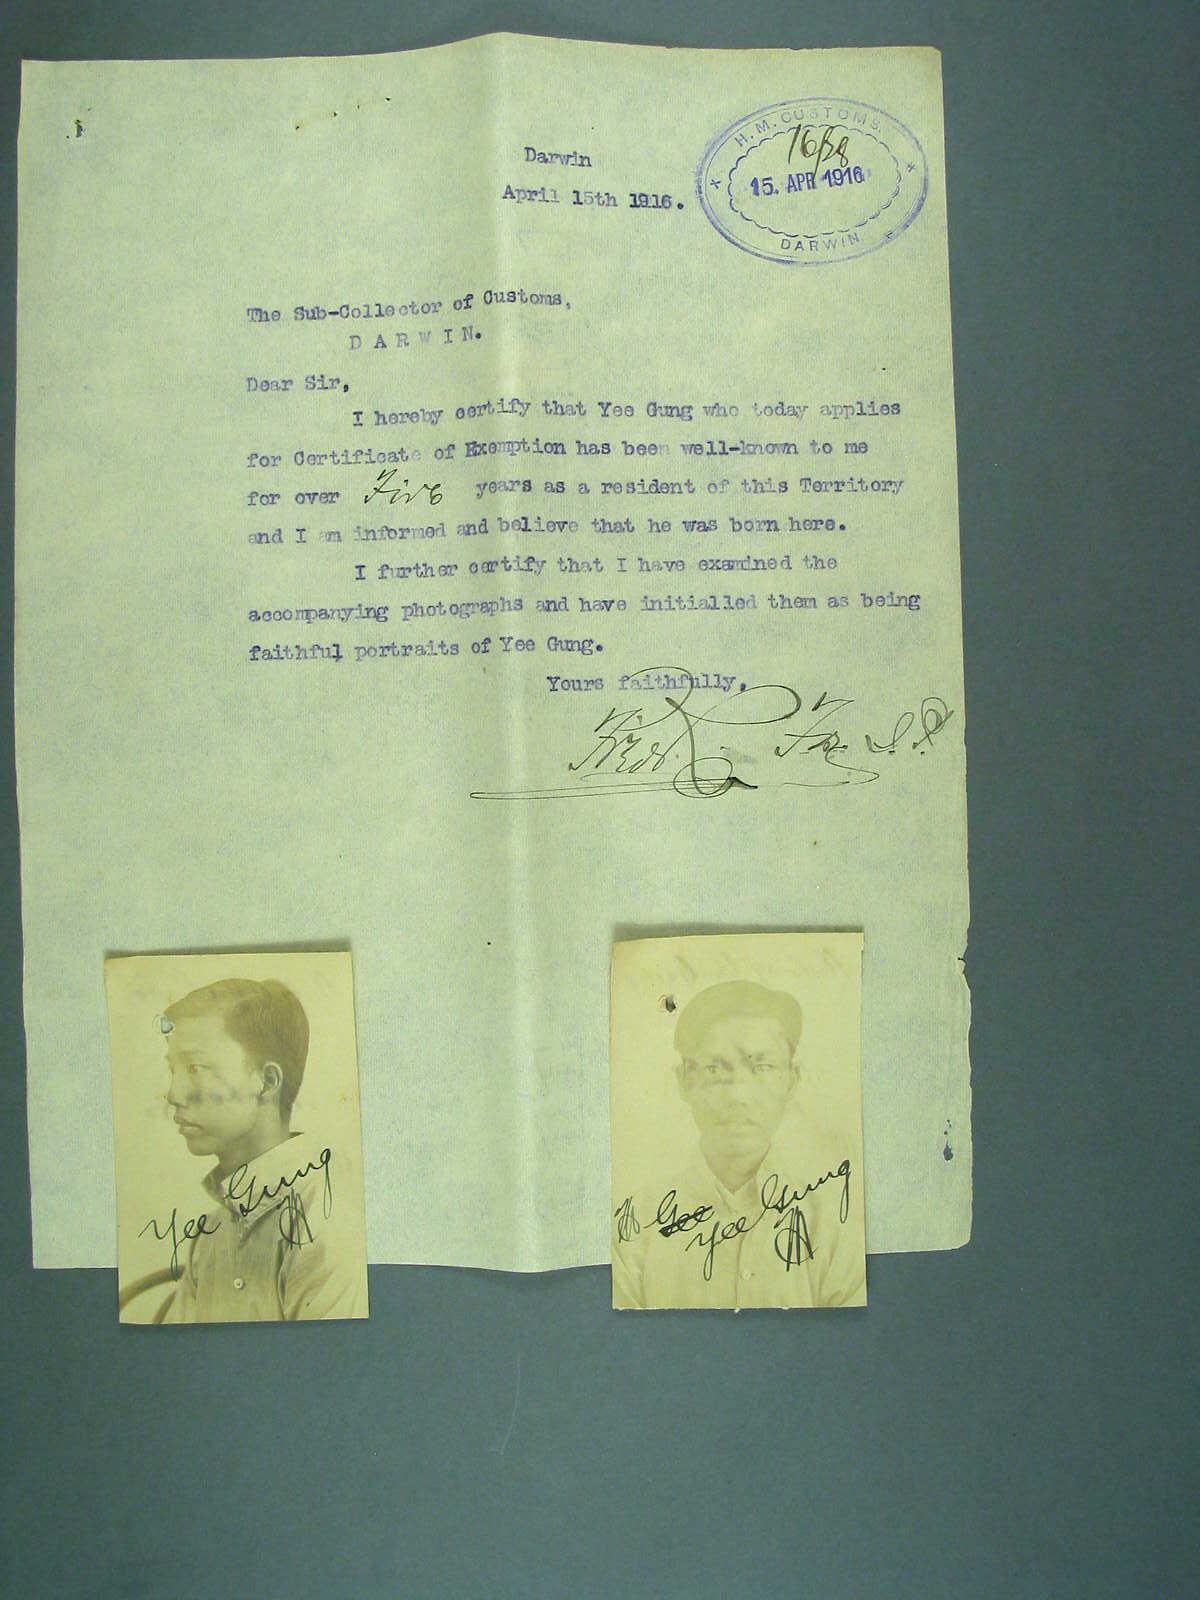 H. M. CUSTOMS.
16/38
15. APR 1916
DARWIN
Darwin
April 15th 1916.
The Sub-Collector of Customs,
D A R W I N.
Dear Sir,
I hereby certify that Yee Gung who today applies
for Certificate of Exemption has been well-known to me
for over Five years as a resident of this Territory
and I am informed and believe that he was born here.
I further certify that I have examined the
accompanying photographs and have initialled them as being
faithful portraits of Yee Gung.
Yours faithfully,
J.P
Yee Gung
Gee
Yee Gung